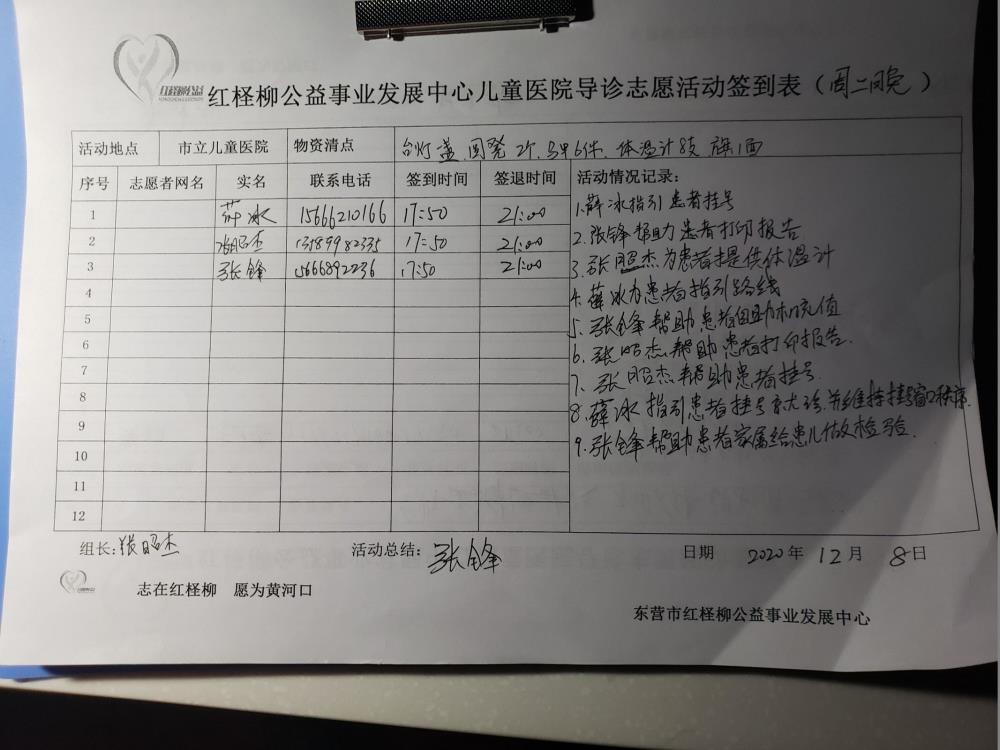 红柽柳公益
红柽柳公益事业发展中心儿童医院导诊志愿活动签到表（周二晚）
活动地点 市立儿童医院 物资清点 台灯 2个.马甲6件.体温计8支.旗1面
序号 志愿者网名 实名 联系电话 签到时间 签退时间 活动情况记录:
1 薛冰 15666210166 17:50 21:00
2 张昭杰 13589982335 17:50 21:00
3 张锋 15666892236 17:50 21:00
4
5
6
7
8
9
10
11
12
1.薛冰指引患者挂号
2.张锋帮助患者打印报告
3.张昭杰为患者提供体温计
4.薛冰为患者指引路线
5.张锋帮助患者自助机充值
6.张昭杰帮助患者打印报告.
7.张昭杰帮助患者挂号.
8.薛冰指引患者挂号 并维持挂号窗口秩序.
9.张锋帮助患者家属给患儿做检验.
组长:张昭杰 活动总结:张锋 日期 2020年12月8日
志在红柽柳 愿为黄河口
东营市红柽柳公益事业发展中心